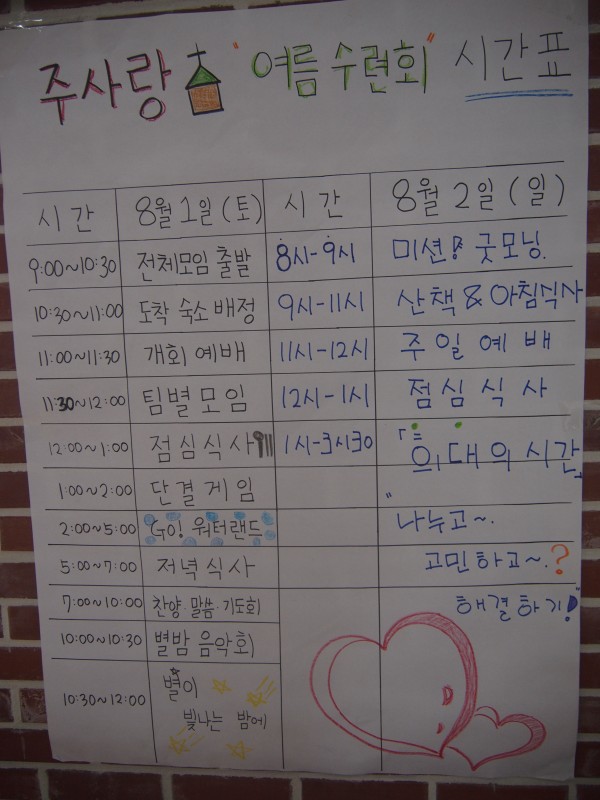 주사랑 "여름 수련회" 시간표
시간 8월 1일 (토) 시간 8월 2일 (일)
9:00~10:30 전체모임 출발 8시-9시 미션! 굿모닝.
10:30~11:00 도착 숙소 배정 9시-11시 산책 & 아침식사
11:00~11:30 개회 예배 11시-12시 주일예배
11:30~12:00 팀별모임 12시-1시 점심식사
12:00~1:00 점심식사 1시-3시30 의 시간」
1:00~2:00 단결게임
2:00~5:00 GO! 워터랜드 나누고~.
5:00~7:00 저녁식사 고민하고~.?
7:00~10:00 찬양·말씀·기도회 해결하기!"
10:00~10:30 별밤 음악회
10:30~12:00 별이
빛나는 밤에